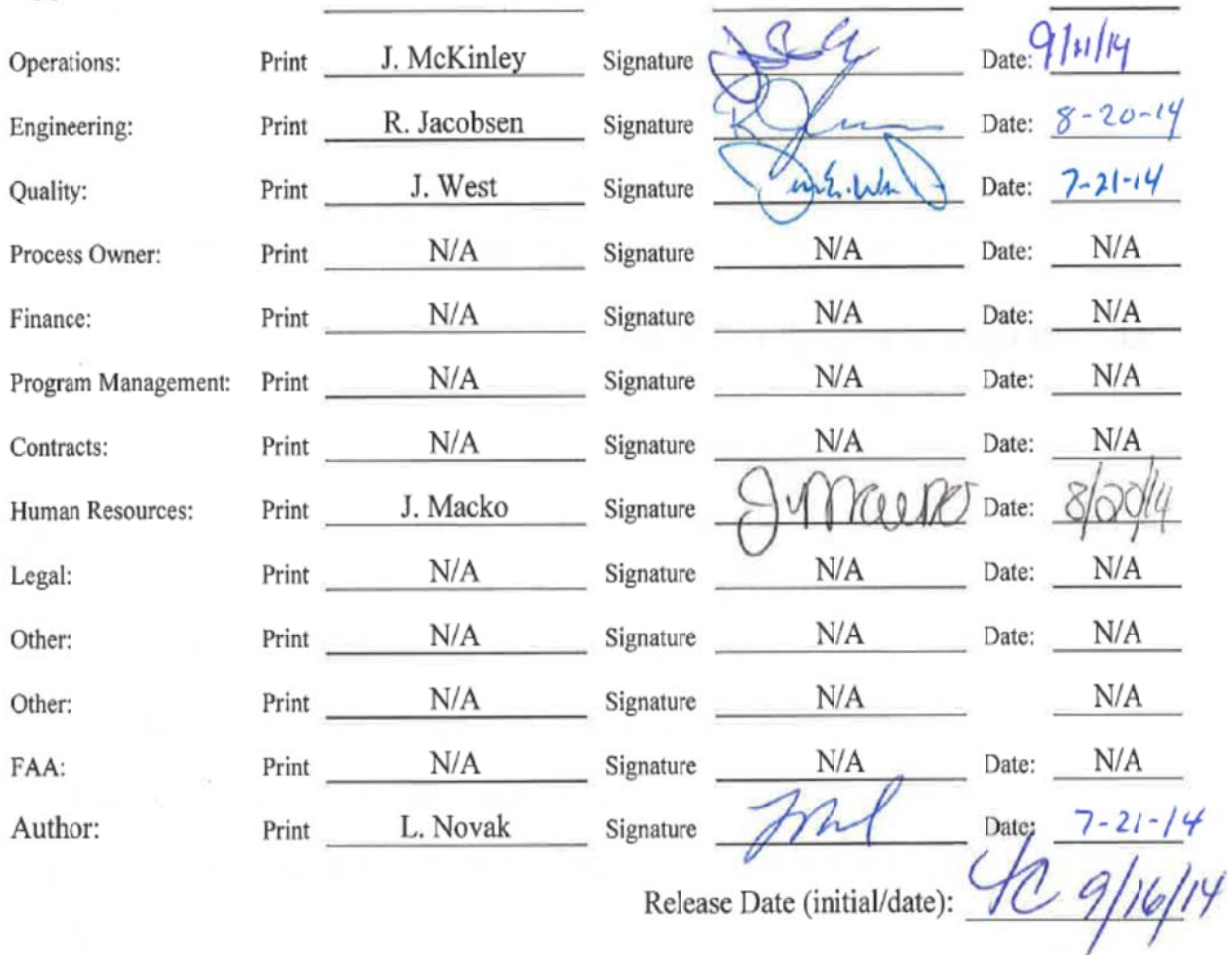 Operations: Print J. McKinley Signature Date: 9/11/14
Engineering: Print R. Jacobsen Signature Date: 8-20-14
Quality: Print J. West Signature Date: 7-21-14
Process Owner: Print N/A Signature N/A Date: N/A
Finance: Print N/A Signature N/A Date: N/A
Program Management: Print N/A Signature N/A Date: N/A
Contracts: Print N/A Signature N/A Date: N/A
Human Resources: Print J. Macko Signature Date: 8/20/14
Legal: Print N/A Signature N/A Date: N/A
Other: Print N/A Signature N/A Date: N/A
Other: Print N/A Signature N/A N/A
FAA: Print N/A Signature N/A Date: N/A
Author: Print L. Novak Signature Date: 7-21-14
Release Date (initial/date): 9/16/14